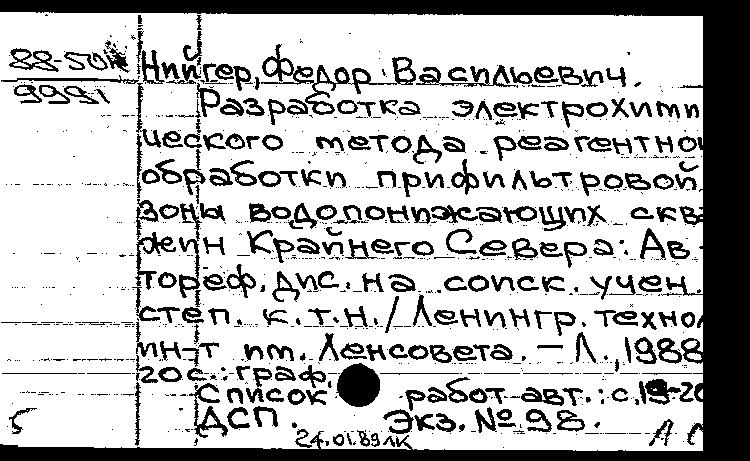 88-501к
9991
Нийгер, Федор Васильевич.
Разработка электрохими
ческого метода реагентно
обработки прифильтровой
зоны водопонижающих сква
жин Крайнего Севера: Ав-
тореф. дис. на соиск. учен.
степ. к.т.н./ Ленингр. техно
ин-т им. Ленсовета. – Л., 1988
20с.: граф.
Список работ авт.: с. 19-20
ДСП. Экз. № 98.
5
24.01.89
А С